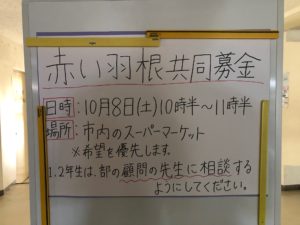 赤い羽根共同募金
日時:10月8日(土)10時半～11時半
場所:市内のスーパーマーケット
※希望を優先します。
1.2年生は、部の顧問の先生に相談する
ようにしてください。